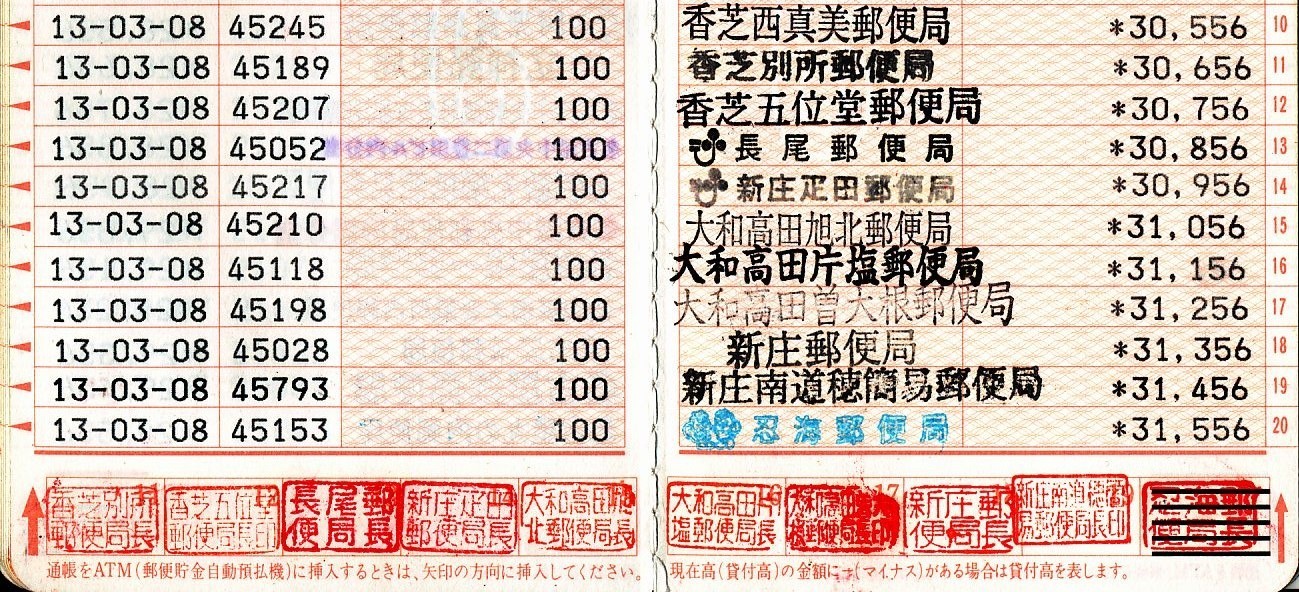 13-03-08 45245 100 香芝西真美郵便局 *30,556 10
13-03-08 45189 100 香芝別所郵便局 *30,656 11
13-03-08 45207 100 香芝五位堂郵便局 *30,756 12
13-03-08 45052 100 長尾郵便局 *30,856 13
13-03-08 45217 100 新庄疋田郵便局 *30,956 14
13-03-08 45210 100 大和高田旭北郵便局 *31,056 15
13-03-08 45118 100 大和高田片塩郵便局 *31,156 16
13-03-08 45198 100 大和高田曽大根郵便局 *31,256 17
13-03-08 45028 100 新庄郵便局 *31,356 18
13-03-08 45793 100 新庄南道穂簡易郵便局 *31,456 19
13-03-08 45153 100 忍海郵便局 *31,556 20
香芝別所郵便局長 香芝五位堂郵便局長印 長尾郵便局長 新庄疋田郵便局長 大和高田旭北郵便局長 大和高田片塩郵便局長 新庄郵便局長 新庄南道穂簡易郵便局長印 忍海郵便局長
通帳をATM(郵便貯金自動預払機)に挿入するときは、矢印の方向に挿入してください。
現在高(貸付高)の金額に−(マイナス)がある場合は貸付高を表します。